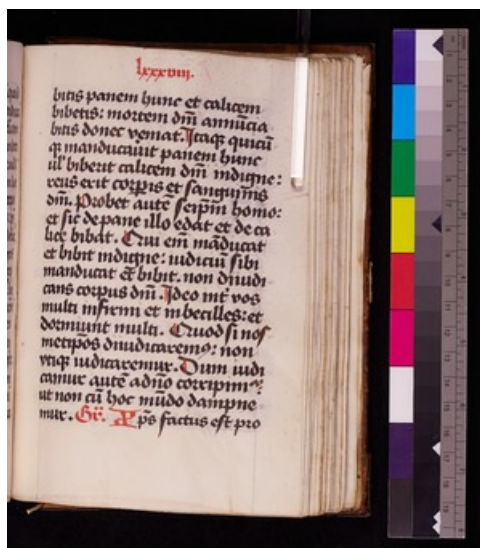 lxxxviii.
bitis panem hunc et calicem
bibetis: mortem dnī annūcia
bitis donec veniat. Itaqꝫ quicū
qꝫ manducauit panem hunc
ul' biberit calicem dnī indigne:
reus erit corpis et sanguinis
dnī. Probet autē seipm̄ homo:
et sic de pane illo edat et de ca
lice bibat. Qui em̄ māducat
et bibit indigne: iudiciū sibi
manducat et bibit. non diiudi
cans corpus dnī. Ideo int' vos
multi infirmi et inbecilles: et
dormiunt multi. Quod si nos
metip̄os diiudicaremꝯ: non
vtiqꝫ iudicaremur. Dum iudi
camur autē a dn̄o corripimꝰ
ut non cū hoc mūdo dampne
mur. Gr̄. Xp̄s factus est pro